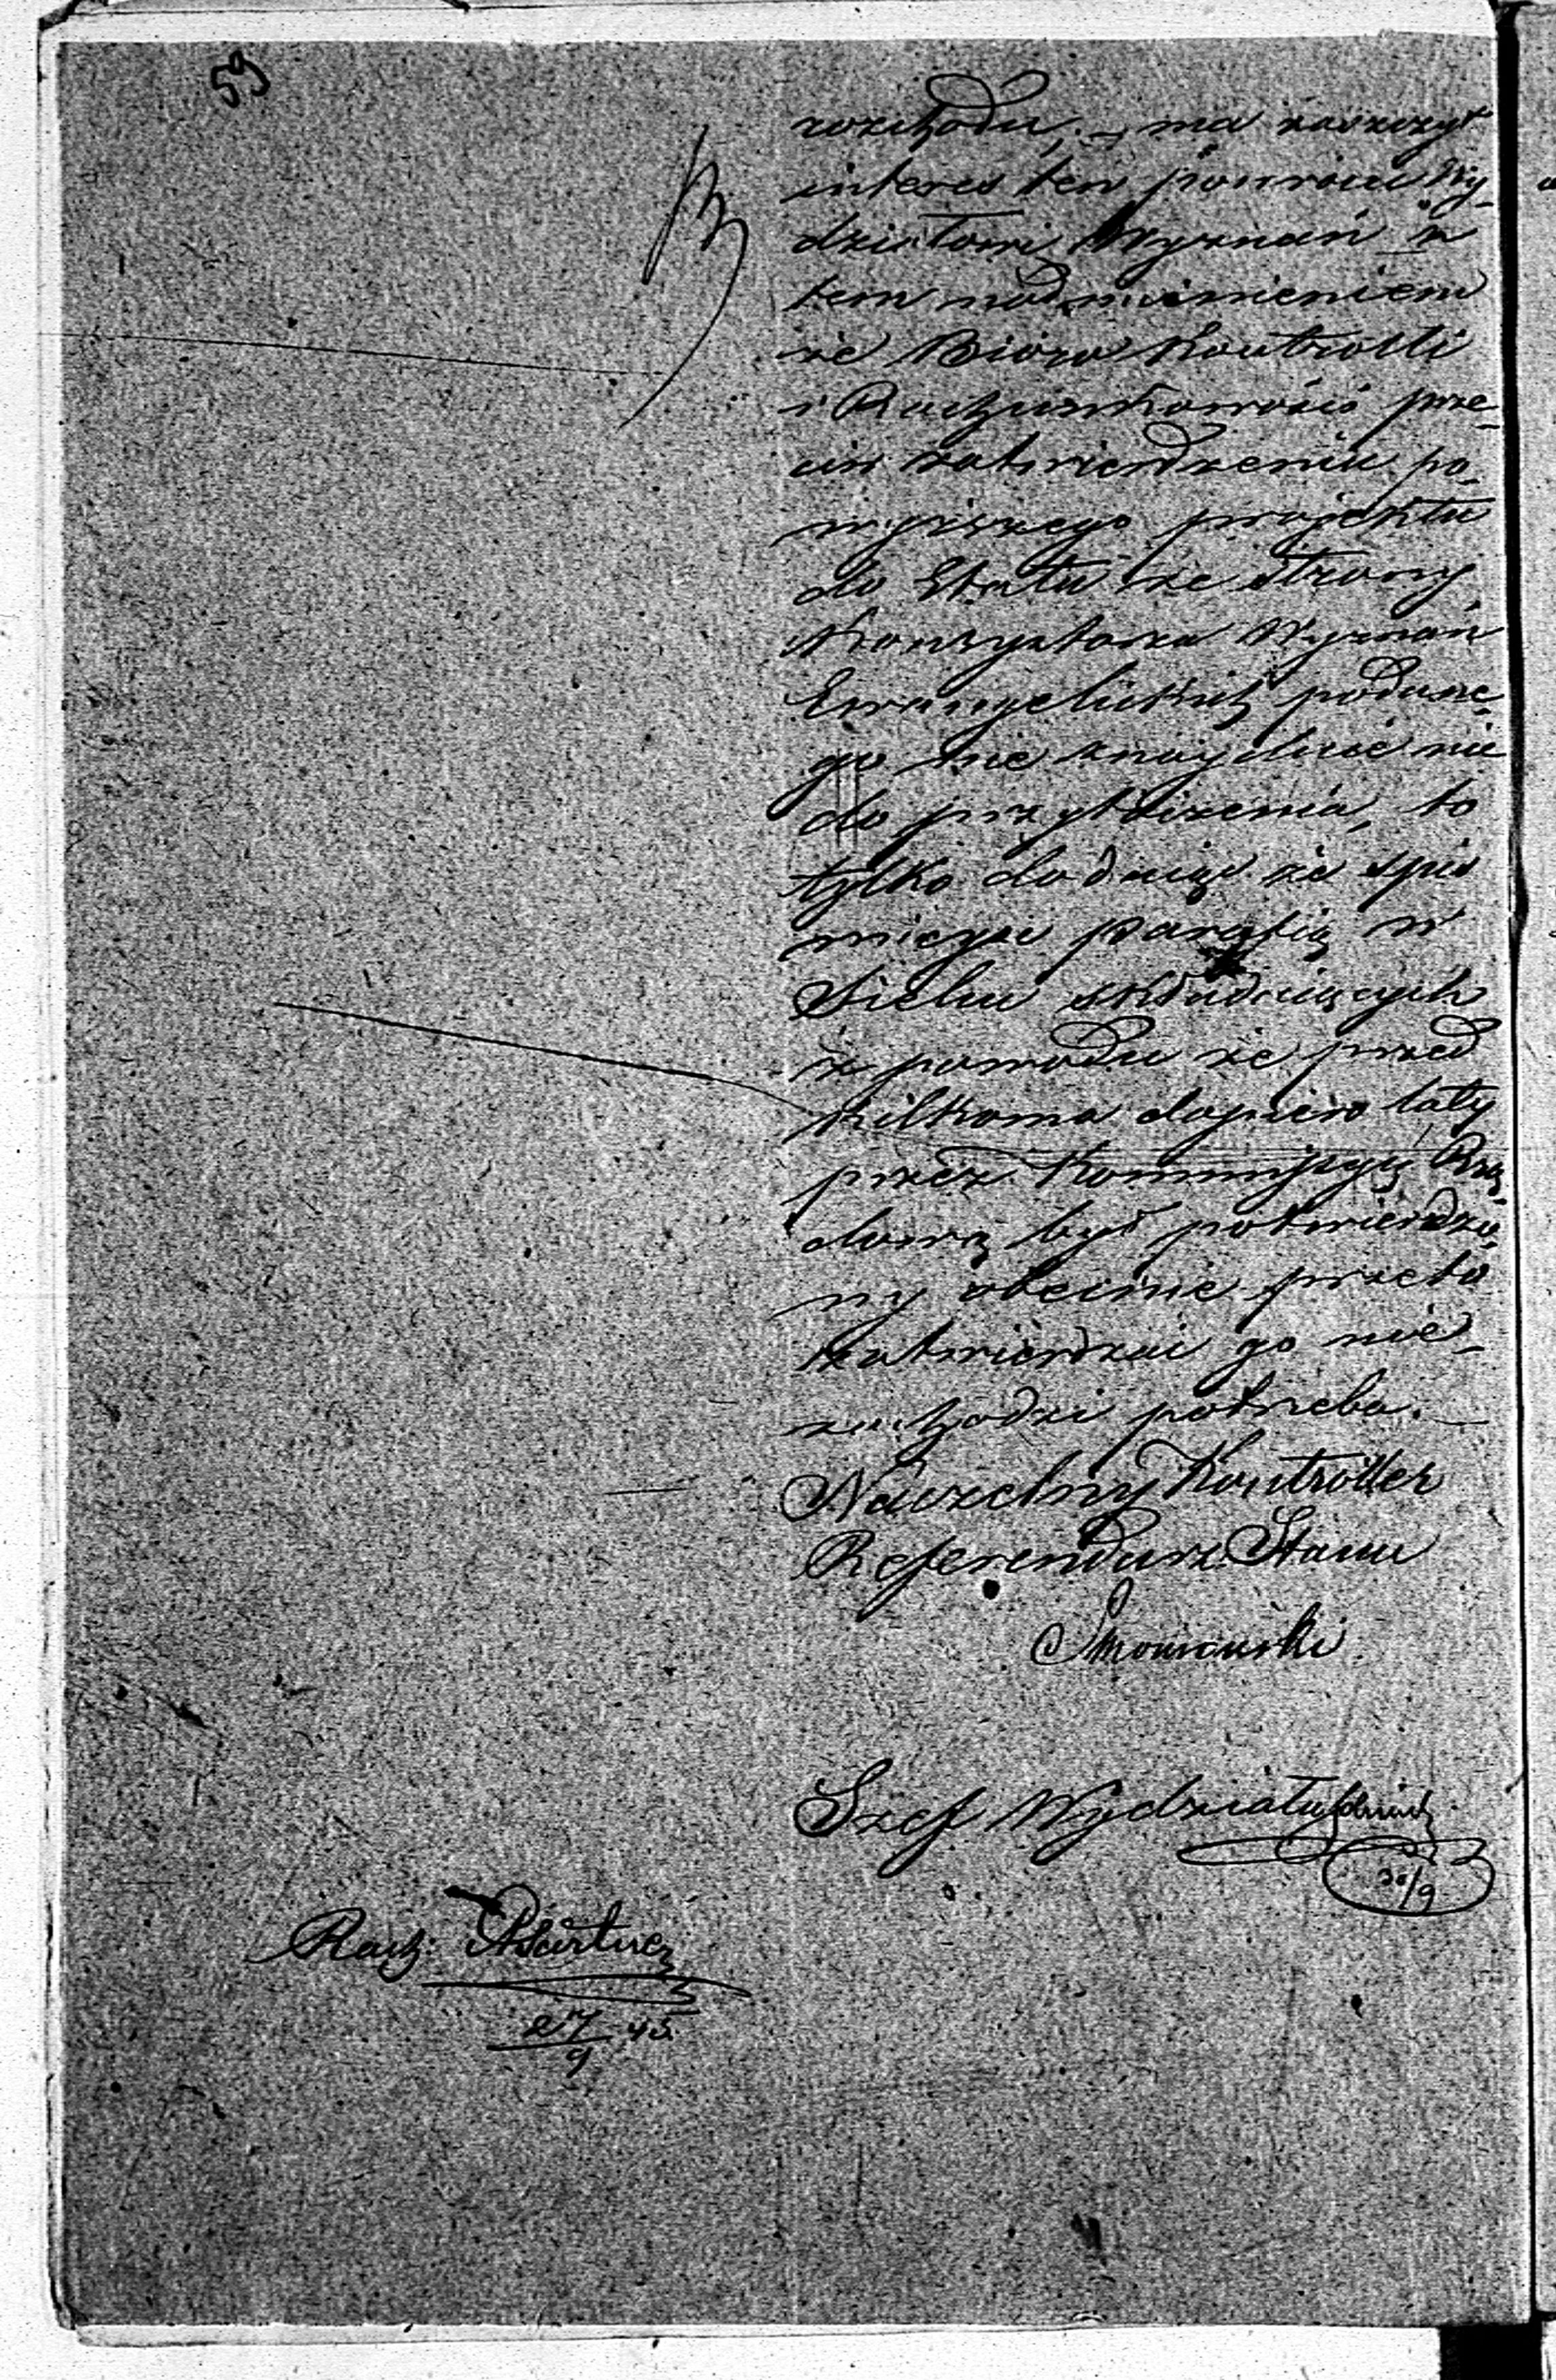 59
rozchodu, ma zaszczyt
interes ten powrócić Wy-
działowi Wyznań z
tem nadmienieniem
że Bióro Kontrolli
i Rachunkowości prze-
ciw zatwierdzeniu po-
wyższego projektu
do Etatu ze strony
Konsystorza Wyznań
Ewangelickich podane-
go nie znajduie nic
do przytoczenia, to
tylko dodaiąc że spis
mieysc parafią w
Sielcu składaiących
z powodu że przed
kilkoma dopiero laty
przez Kommissyą Rzą-
dową był potwierdzo-
ny obecnie przeto
zatwierdzać go nie-
zachodzi potrzeba.
Naczelny Kontroller
Referendarz Stanu
Szef Wydziału
30/9
Rach.
27/9 45.